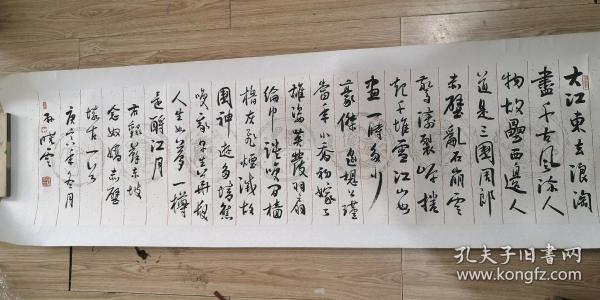 大江東去浪淘
盡千古風流人
物故壘西邊人
道是三國周郎
赤壁亂石崩雲
驚濤裂岸捲
起千堆雪江山如
畫一時多少
豪傑遥想公瑾
當年小喬初嫁了
雄姿英發羽扇
綸巾談笑間檣
櫓灰飛煙滅故
國神遊多情應
笑我早生華髮
人生如夢一樽
還酹江月
右錄蘇東坡
念奴嬌赤壁
懷古一首
孔夫子旧书网
www.kongfz.com